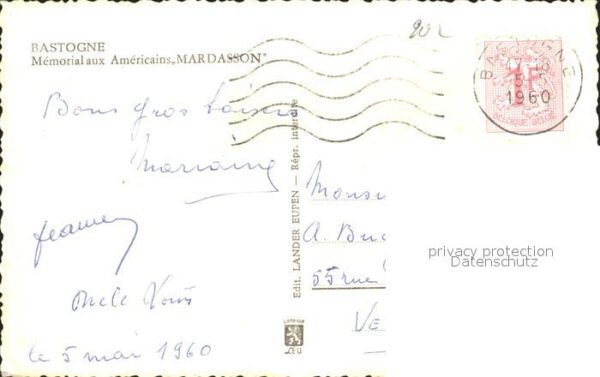 BASTOGNE
Mémorial aux Américains „MARDASSON"
202
BASTOGNE
1960
1F
BELGIQUE-BELGIE
Bons gros baisers
Marraine
Jeannen
Oncle Louis
le 5 mai 1960
Edit. LANDER EUPEN — Répr. interdite
LEU
Monsi
A. Buc
55 rue
Ve
privacy protection
Datenschutz